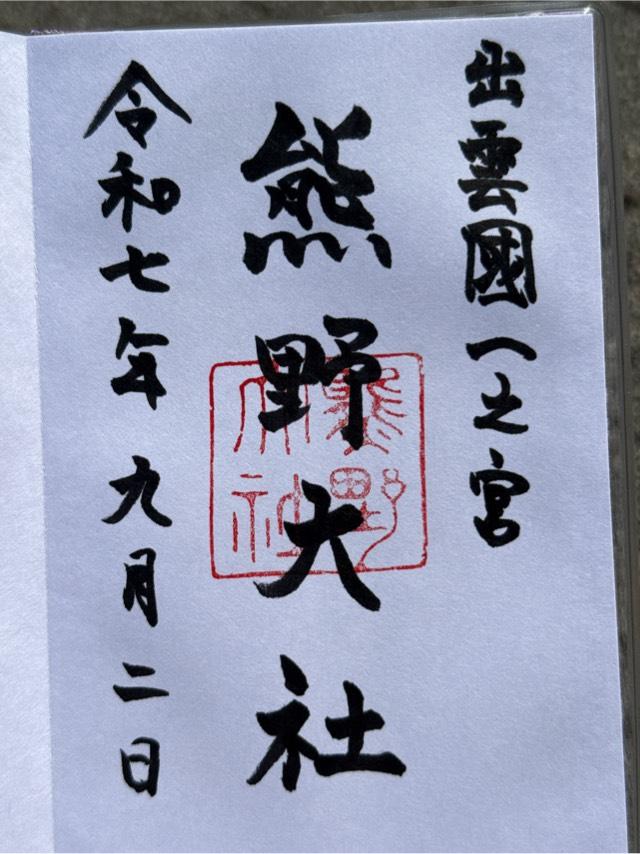 出雲國一之宮
熊野大社
熊野大社
令和七年九月二日